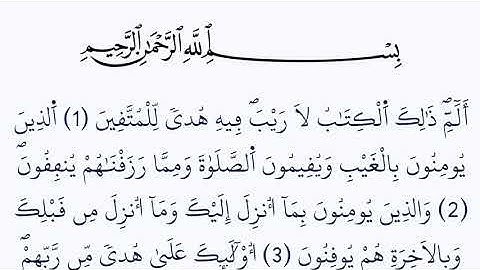 بِسْمِ اللَّهِ الرَّحْمَٰنِ الرَّحِيمِ
أَلَٓمِّٓۖ ذَٰلِكَ اَ۬لْكِتَٰبُ لَا رَيْبَۖ فِيهِ هُدىٗ لِّلْمُتَّقِينَ (1) اَ۬لذِينَ
يُومِنُونَ بِالْغَيْبِ وَيُقِيمُونَ اَ۬لصَّلَوٰةَ وَمِمَّا رَزَقْنَٰهُمْ يُنفِقُونَۖ
(2) وَالذِينَ يُومِنُونَ بِمَآ أُنزِلَ إِلَيْكَ وَمَآ أُنزِلَ مِن قَبْلِكَ
وَبِالَاخِرَةِ هُمْ يُوقِنُونَ (3) أُوْلَٰٓئِكَ عَلَىٰ هُدىٗ مِّن رَّبِّهِمْۖ